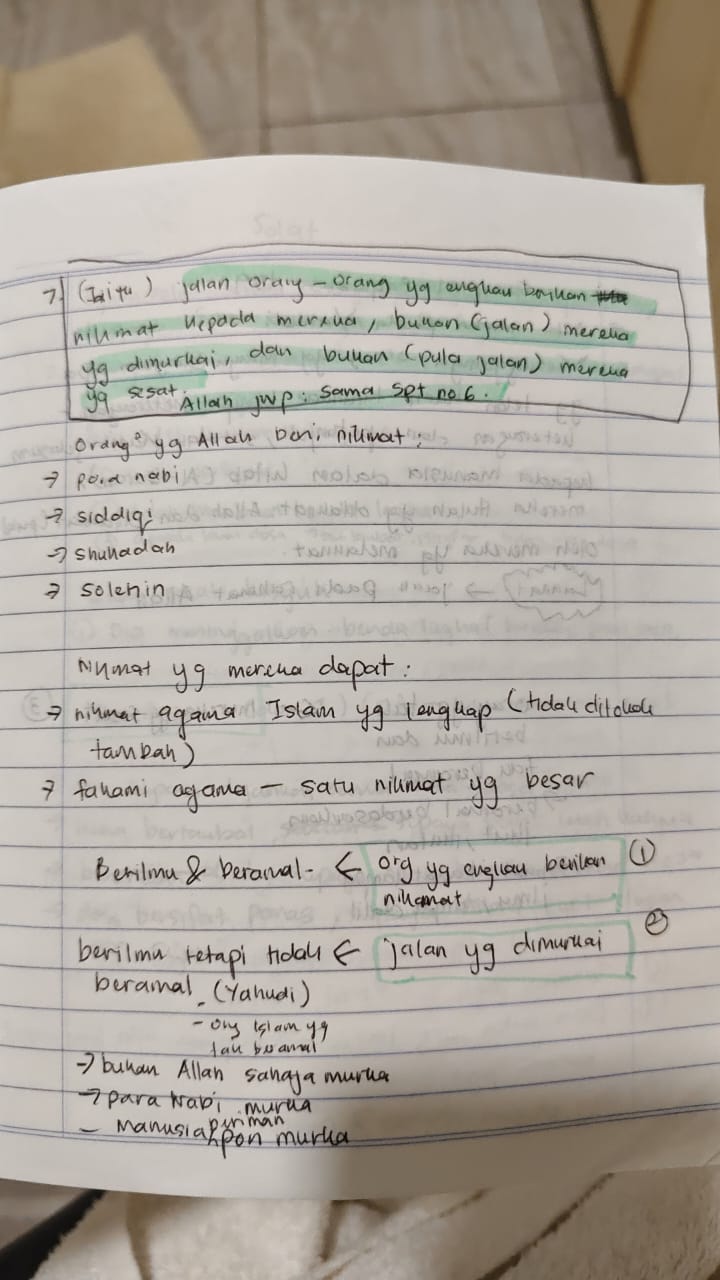 7) (Iaitu) jalan orang - orang yg engkau berikan
nikmat kepada mereka, bukan (jalan) mereka
yg dimurkai, dan bukan (pula jalan) mereka
yg sesat. Allah jwp: sama spt no 6.
Orang² yg Allah beri nikmat:
→ para nabi
→ siddiqi
→ shuhadah
→ solehin
Nikmat yg mereka dapat:
→ nikmat agama Islam yg lengkap (tidak ditokok
tambah)
→ fahami agama — satu nikmat yg besar
Berilmu & beramal- ← org yg engkau berikan ①
nikamat
berilmu tetapi tidak ← jalan yg dimurkai ②
beramal. (Yahudi)
- org Islam yg
tak beramal
→ bukan Allah sahaja murka
→ para Nabi murka
- Manusia pon murka